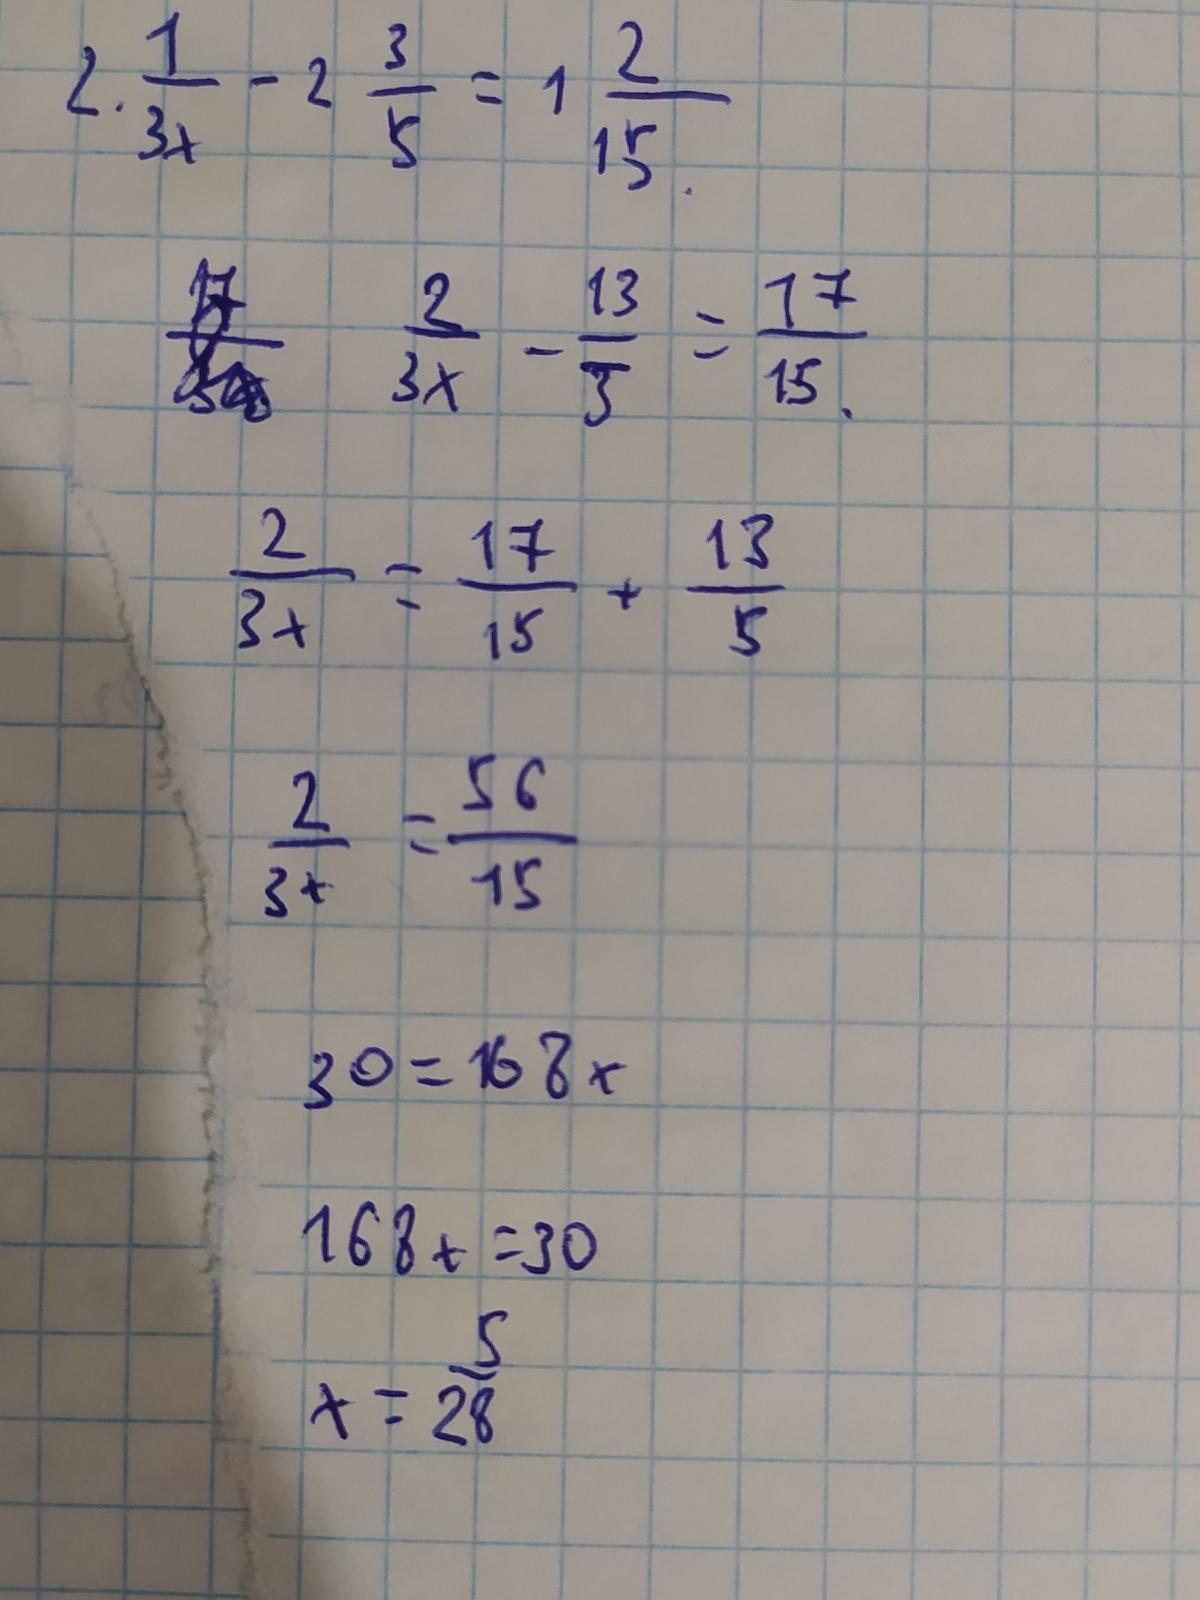 2. 1/3x - 2 3/5 = 1 2/15.
2/3x - 13/5 = 17/15.
2/3x = 17/15 + 13/5
2/3x = 56/15
30 = 168x
168x = 30
x = 5/28